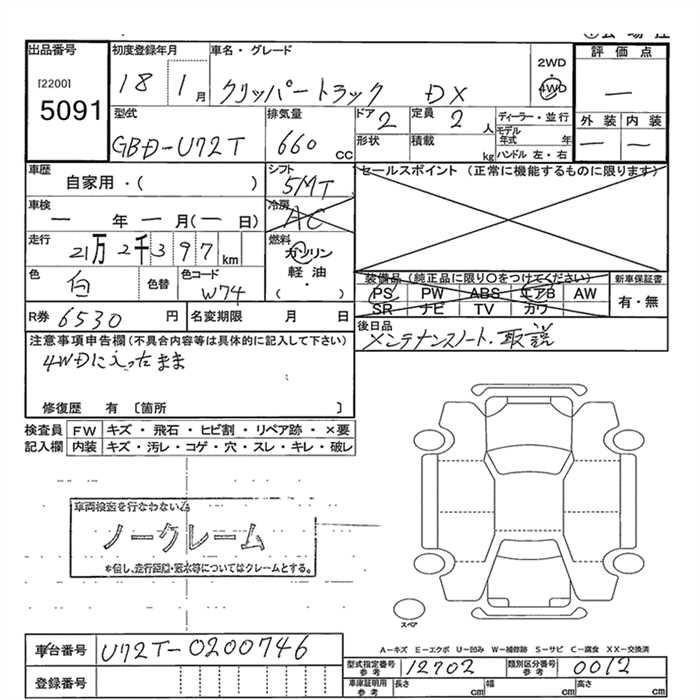 出品番号 初度登録年月 車名・グレード 2WD 評価点
[2200] 18 1月 クリッパートラック DX 4WD —
5091
型式 排気量 ドア 定員 ディーラー・並行 外装 内装
GBD-U72T 660cc 2 2人 モデル年式 年 — —
形状 積載 kg ハンドル 左・右
車歴 シフト セールスポイント (正常に機能するものに限ります)
自家用・( ) 5MT
車検 冷房
— 年 — 月(— 日) AC
走行 燃料
21万2千397km ガソリン
軽油
・
( )
色 色替 色コード 装備品(純正品に限り○をつけてください) 新車保証書
白 W74 PS PW ABS エアB AW 有・無
SR ナビ TV カワ
R券 6530円 名変期限 月 日 後日品
メンテナンスノート・取説
注意事項申告欄(不具合内容等は具体的に記入して下さい)
4WDに入ったまま
修復歴 有 〔箇所 〕
検査員 FW キズ・飛石・ヒビ割・リペア跡・×要
記入欄 内装 キズ・汚レ・コゲ・穴・スレ・キレ・破レ
車両検査を行なわない為
ノークレーム
*但し、走行距離・冠水等についてはクレームとする。
スペア
A-キズ E-エクボ U-凹み W-補修跡 S-サビ C-腐食 XX-交換済
車台番号 U72T-0200746
型式指定番号 参考 12702 類別区分番号 参考 0012
登録番号
車庫証明用 参考 長さ cm 幅 cm 高さ cm